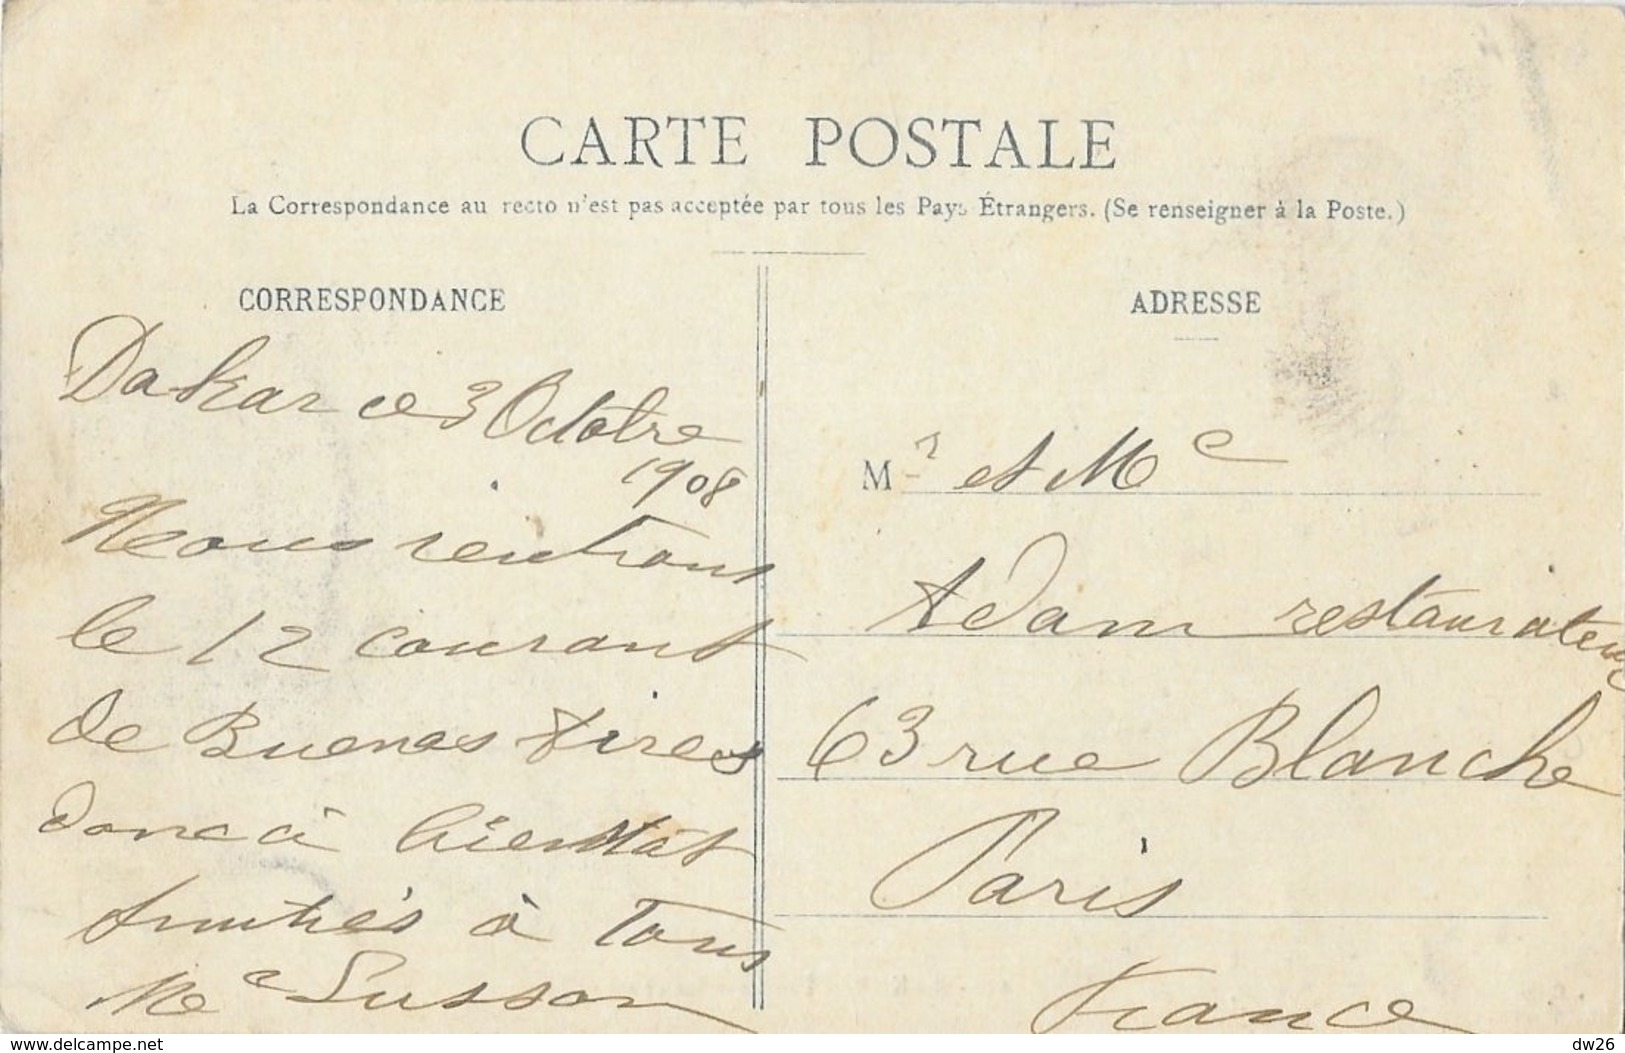 CARTE POSTALE
La Correspondance au recto n'est pas acceptée par tous les Pays Étrangers. (Se renseigner à la Poste.)
CORRESPONDANCE
Dakar ce 3 Octobre
1908
Nous rentrons
le 12 courant
de Buenos Aires
donc à bientôt
Amitiés à Tous
Me Susson
ADRESSE
Mr et Me
Adam restaurateur
63 rue Blanche
Paris
France
delcampe.net
dw26